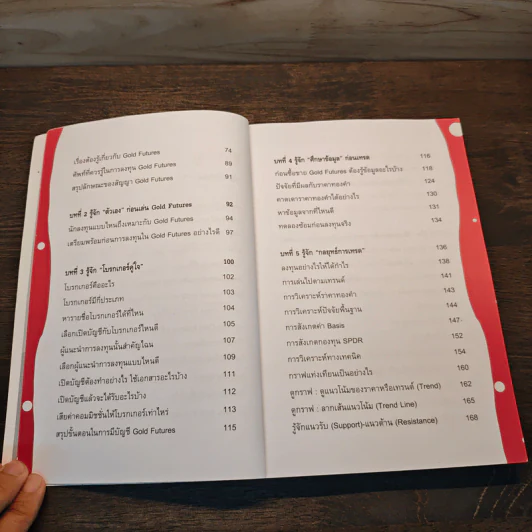 เรื่องต้องรู้เกี่ยวกับ Gold Futures 74
ศัพท์ที่ควรรู้ในการลงทุน Gold Futures 89
สรุปลักษณะของสัญญา Gold Futures 91
บทที่ 2 รู้จัก "ตัวเอง" ก่อนเล่น Gold Futures 92
นักลงทุนแบบไหนถึงเหมาะกับ Gold Futures 94
เตรียมพร้อมก่อนการลงทุนใน Gold Futures อย่างไรดี 97
บทที่ 3 รู้จัก "โบรกเกอร์คู่ใจ" 100
โบรกเกอร์คืออะไร 102
โบรกเกอร์มีกี่ประเภท 103
หารายชื่อโบรกเกอร์ได้ที่ไหน 104
เลือกเปิดบัญชีกับโบรกเกอร์ไหนดี 105
ผู้แนะนำการลงทุนนั้นสำคัญไฉน 107
เลือกผู้แนะนำการลงทุนแบบไหนดี 109
เปิดบัญชีต้องทำอย่างไร ใช้เอกสารอะไรบ้าง 111
เปิดบัญชีแล้วจะได้รับอะไรบ้าง 112
เสียค่าคอมมิชชั่นให้โบรกเกอร์เท่าไหร่ 113
สรุปขั้นตอนในการมีบัญชี Gold Futures 115
บทที่ 4 รู้จัก "ศึกษาข้อมูล" ก่อนเทรด 116
ก่อนซื้อขาย Gold Futures ต้องรู้ข้อมูลอะไรบ้าง 118
ปัจจัยที่มีผลกับราคาทองคำ 124
คาดเดาราคาทองคำได้อย่างไร 130
หาข้อมูลจากที่ไหนดี 131
ทดลองซ้อมก่อนลงทุนจริง 134
บทที่ 5 รู้จัก "กลยุทธ์การเทรด" 136
ลงทุนอย่างไรให้ได้กำไร 138
การเล่นไปตามเทรนด์ 141
การวิเคราะห์ราคาทองคำ 143
การวิเคราะห์ปัจจัยพื้นฐาน 144
การสังเกตค่า Basis 147
การสังเกตกองทุน SPDR 152
การวิเคราะห์ทางเทคนิค 154
กราฟแท่งเทียนเป็นอย่างไร 160
ดูกราฟ : ดูแนวโน้มของราคาหรือเทรนด์ (Trend) 162
ดูกราฟ : ลากเส้นแนวโน้ม (Trend Line) 165
รู้จักแนวรับ (Support)-แนวต้าน (Resistance) 168